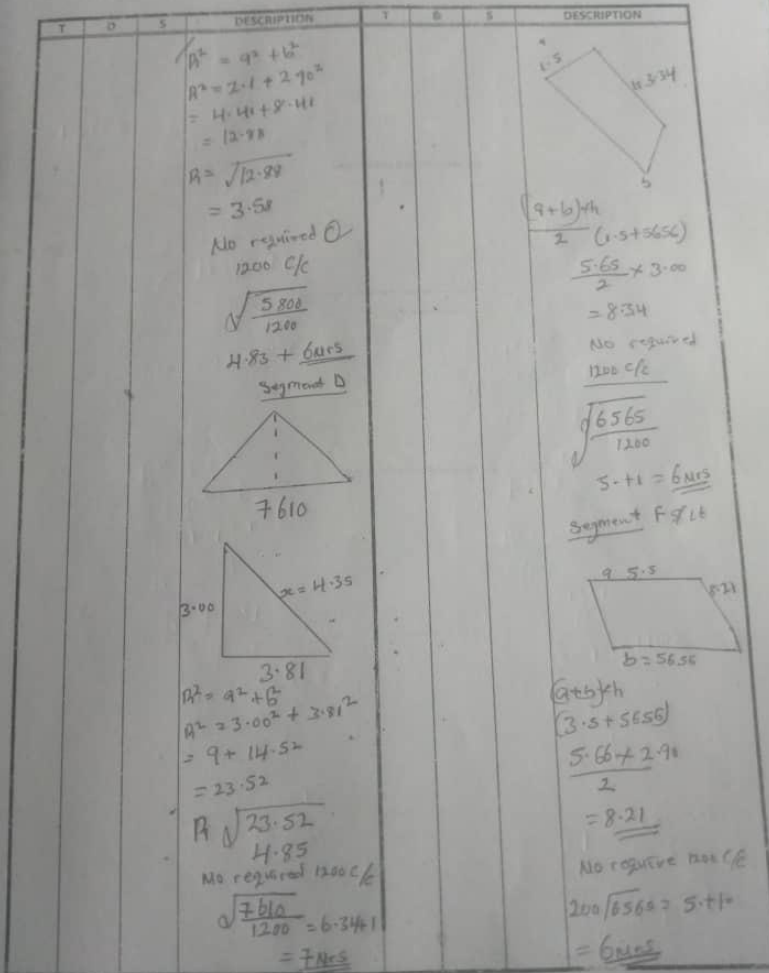 T D S DESCRIPTION
R² = a² + b²
R² = 2.1 + 2.90²
= 4.41 + 8.41
= 12.88
R = √12.88
= 3.58
No required
1200 C/C
√5800/1200
4.83 + 6Nrs
Segment D
7610
3.00
x = 4.35
3.81
R² = a² + b²
R² = 3.00² + 3.81²
= 9 + 14.52
= 23.52
R √23.52
4.85
No required 1200 C/C
√7610/1200 = 6.34+1
= 7Nrs
T D S DESCRIPTION
1.5
3.34
b
(a+b)×h/2 (1.5+5656)
5.65/2 × 3.00
= 8.34
No required
1200 C/C
√6565/1200
5.+1 = 6Nrs
Segment F
a 5.5
8.21
b = 5656
(a+b)×h
(3.5+5656)
5.66 × 2.90
2
= 8.21
No require 1200 C/C
= 6Nrs